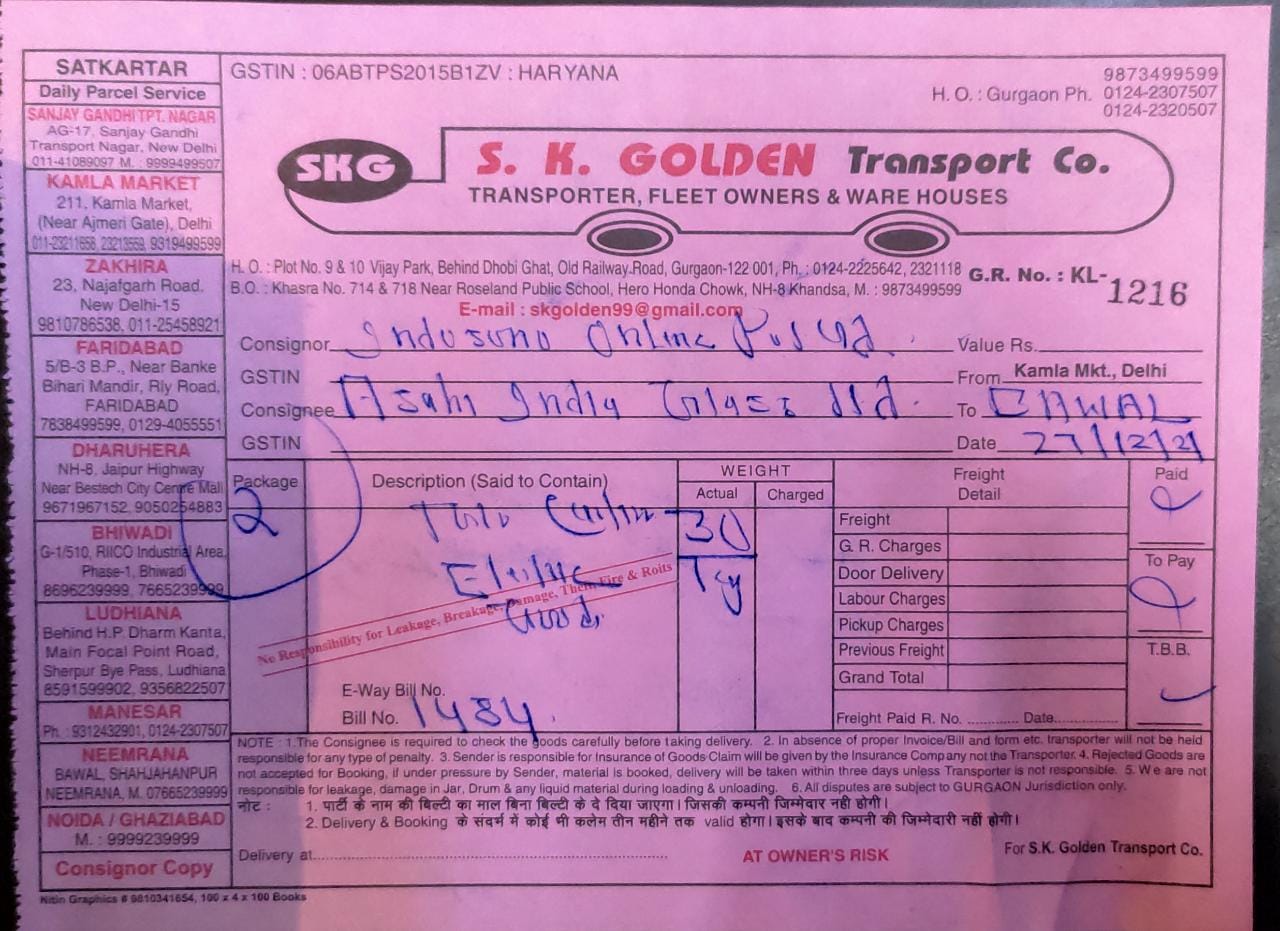 SATKARTAR
Daily Parcel Service
SANJAY GANDHI TPT. NAGAR
AG-17, Sanjay Gandhi
Transport Nagar, New Delhi
011-41089097 M. : 9999499507
KAMLA MARKET
211, Kamla Market,
(Near Ajmeri Gate), Delhi
011-23211658, 23213559, 9319499599
ZAKHIRA
23, Najafgarh Road,
New Delhi-15
9810786538, 011-25458921
FARIDABAD
5/B-3 B.P., Near Banke
Bihari Mandir, Rly Road,
FARIDABAD
7838499599, 0129-4055551
DHARUHERA
NH-8, Jaipur Highway
Near Bestech City Centre Mall
9671967152, 9050254883
BHIWADI
G-1/510, RIICO Industrial Area,
Phase-1, Bhiwadi
8696239999, 7665239999
LUDHIANA
Behind H.P. Dharm Kanta,
Main Focal Point Road,
Sherpur Bye Pass, Ludhiana
8591599902, 9356822507
MANESAR
Ph. : 9312432901, 0124-2307507
NEEMRANA
BAWAL, SHAHJAHANPUR
NEEMRANA, M. 07665239999
NOIDA / GHAZIABAD
M. : 9999239999
Consignor Copy
Nitin Graphics # 9810341654, 100 x 4 x 100 Books
GSTIN : 06ABTPS2015B1ZV : HARYANA
9873499599
H. O. : Gurgaon Ph. 0124-2307507
0124-2320507
SKG S. K. GOLDEN Transport Co.
TRANSPORTER, FLEET OWNERS & WARE HOUSES
H. O. : Plot No. 9 & 10 Vijay Park, Behind Dhobi Ghat, Old Railway Road, Gurgaon-122 001, Ph. : 0124-2225642, 2321118
B.O. : Khasra No. 714 & 718 Near Roseland Public School, Hero Honda Chowk, NH-8 Khandsa, M. : 9873499599
G.R. No. : KL-1216
E-mail : skgolden99@gmail.com
Consignor Online Value Rs.
GSTIN From Kamla Mkt., Delhi
Consignee Asahi India Glass ltd. To BAWAL
GSTIN Date 27/12/21
Package Description (Said to Contain) WEIGHT Freight Detail Paid
Actual Charged
2 30
Kg
Good.
Freight
G. R. Charges
Door Delivery To Pay
Labour Charges
Pickup Charges
Previous Freight T.B.B.
Grand Total
No Responsibility for Leakage, Breakage, Damage, Theft, Fire & Roits
E-Way Bill No.
Bill No. 1484.
Freight Paid R. No. ............ Date...............
NOTE : 1.The Consignee is required to check the goods carefully before taking delivery. 2. In absence of proper Invoice/Bill and form etc. transporter will not be held
responsible for any type of penalty. 3. Sender is responsible for Insurance of Goods Claim will be given by the Insurance Company not the Transporter. 4. Rejected Goods are
not accepted for Booking, if under pressure by Sender, material is booked, delivery will be taken within three days unless Transporter is not responsible. 5. We are not
responsible for leakage, damage in Jar, Drum & any liquid material during loading & unloading. 6. All disputes are subject to GURGAON Jurisdiction only.
नोट : 1. पार्टी के नाम की बिल्टी का माल बिना बिल्टी के दे दिया जाएगा। जिसकी कम्पनी जिम्मेदार नही होगी।
2. Delivery & Booking के संदर्भ में कोई भी कलेम तीन महीने तक valid होगा। इसके बाद कम्पनी की जिम्मेदारी नहीं होगी।
Delivery at............ AT OWNER'S RISK For S.K. Golden Transport Co.